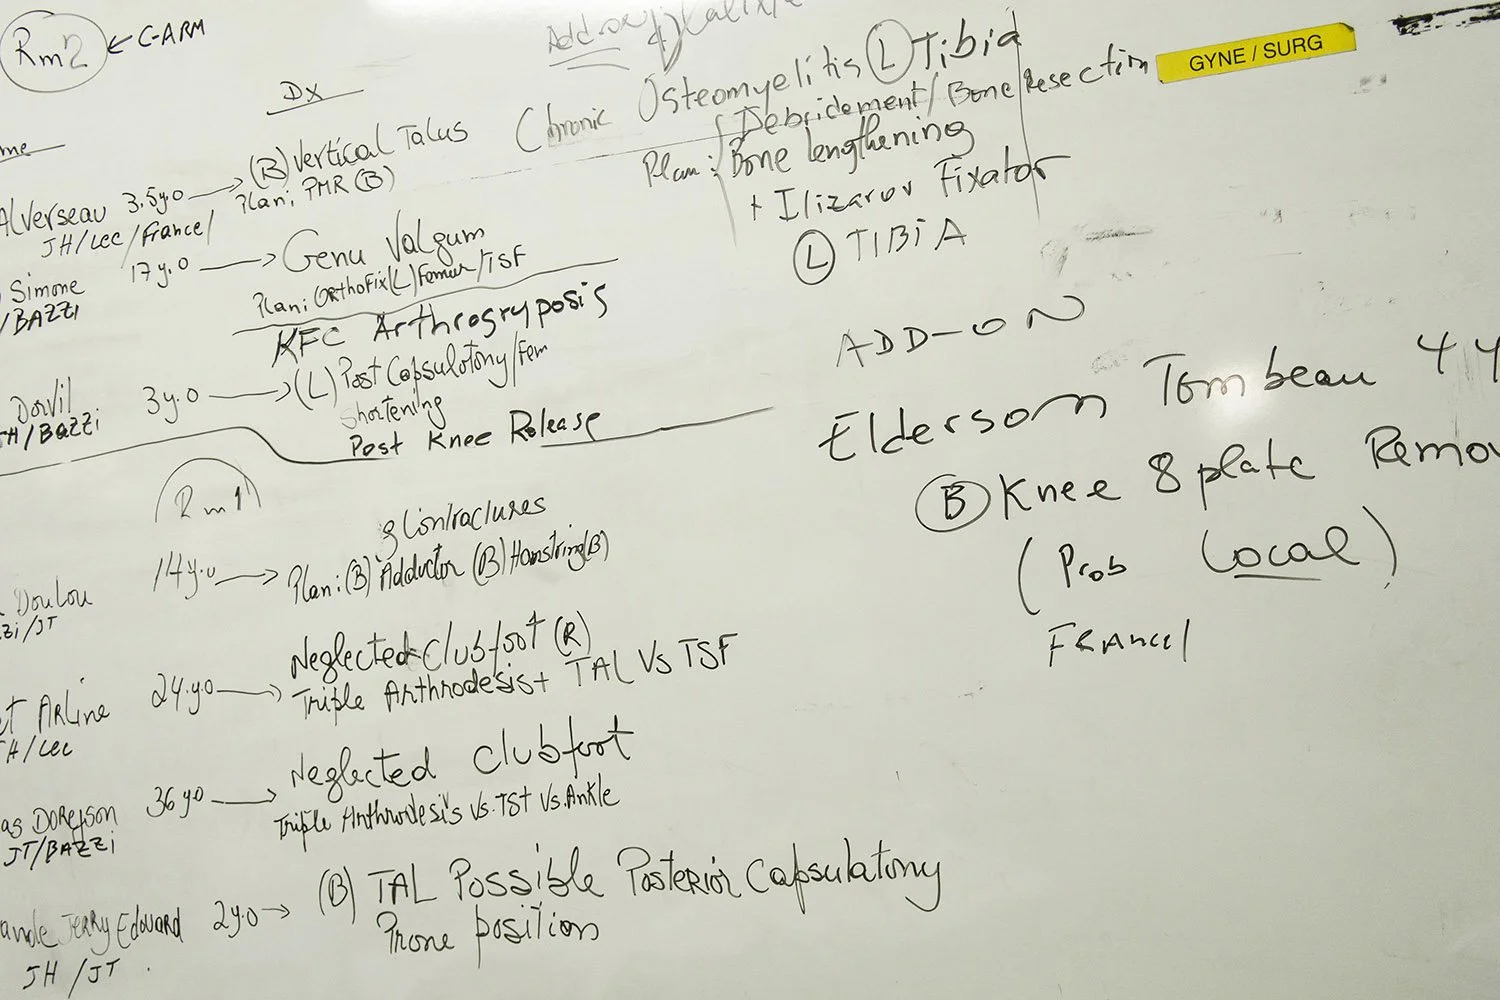 Rm2 ← C-ARM
DX
Alverseau 3.5y.o → (B) Vertical Talus
JH/Lec/France/ Plan: PMR (B)
Simone 17 y.o → Genu Valgum
/BAZZI Plan: OrthoFix (L) Femur/TSF
KFC Arthrogryposis
Dorvil 3y.o → (L) Post Capsulotony/Fem
H/BaZZi Shortening
Post Knee Release
Rm1
Contractures
Doulou 14 y.o → Plan: (B) Adductor (B) Hamstring (B)
zi/JT
Neglected Clubfoot (R)
Arline 24.y.o → Triple Arthrodesis + TAL Vs TSF
H/Lec
Neglected Clubfoot
as Doreyson 36 y.o → Triple Arthrodesis Vs. TSF Vs. Ankle
JT/BAZZi
Jerry Edouard 2y.o → (B) TAL Possible Posterior Capsulatony
JH /JT . Prone position
Add-on
Chronic Osteomyelitis (L) Tibia
Plan: Debridement/Bone Resection
Bone lengthening
+ Ilizarov Fixator
(L) TIBiA
GYNE / SURG
ADD-ON
Elderson Tombeau 4 y
(B) Knee 8 plate Remov
(Prob Local)
France/